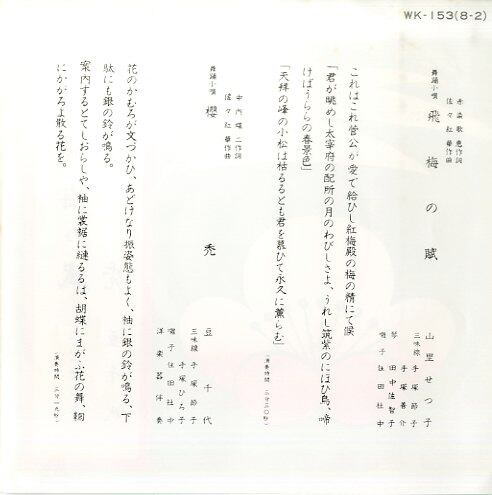 WK-153(8-2)
舞踊小唄
飛梅の賦
赤染歌恵作詞
佐々紅華作曲
山里せつ子
三味線 手塚節子
手塚善介
琴 田中佐智子
囃子 住田社中
これはこれ菅公が愛で給ひし紅梅殿の梅の精にて候
「君が眺めし太宰府の配所の月のわびしさよ、うれし筑紫のにほひ鳥、啼
けばうららの春景色」
「天拝の峰の小松は枯るるとも君を慕ひて永久に薫らむ」
(演奏時間 三分三〇秒)
舞踊小唄
櫻禿
中内蝶二作詞
佐々紅華作曲
豆千代
三味線 手塚節子
手塚ひろ子
囃子 住田社中
洋楽器伴奏
花のかむろが文づかひ、あどけなり振姿態もよく、袖に銀の鈴が鳴る、下
駄にも銀の鈴が鳴る。
案内するとてしおらしや、袖に裳裾に縺るるは、胡蝶にまがふ花の舞、鞠
にかがろよ散る花を。
(演奏時間 三分一九秒)